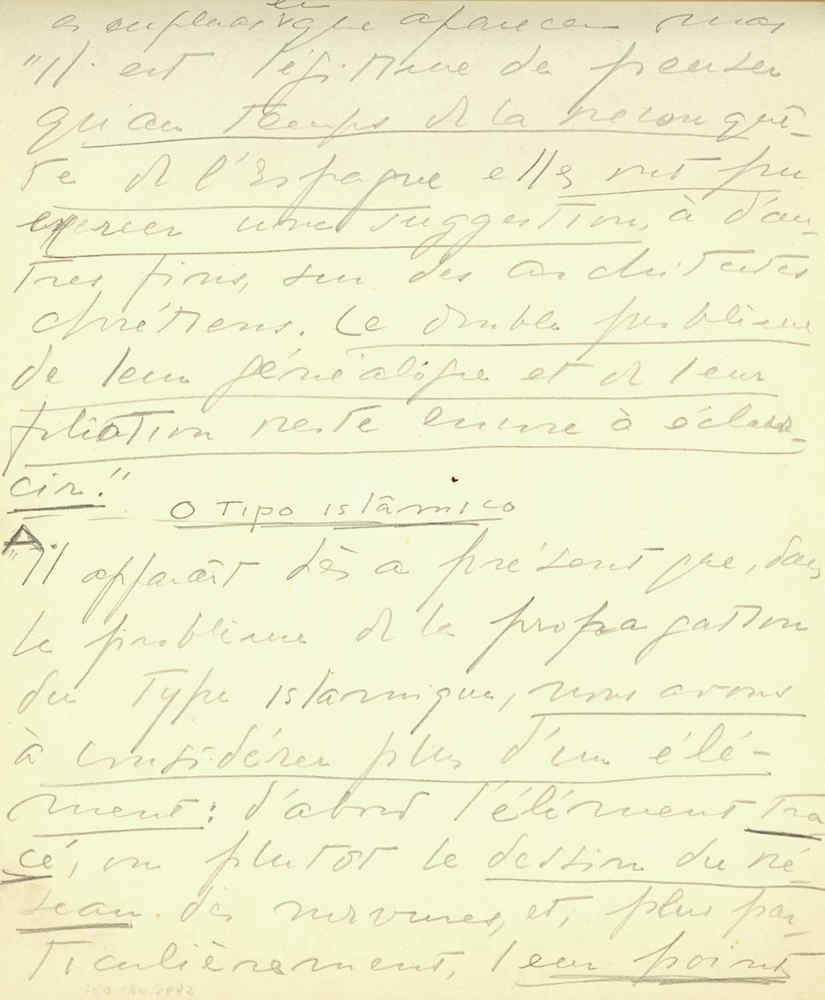 as ruplas em que aparecem mas
"Il est légitime de penser
qu'au temps de la reconquê-
te de l'Espagne elles ont pu
exercer une suggestion, à d'au-
tres fins, sur des architectes
chrétiens. Le double problème
de leur généalogie et de leur
filiation reste encore à éclair-
cir."
O Tipo islâmico
A.
"Il apparaît dès a présent que, dans
le problème de la propagation
du Type islamique, nous avons
à considérer plus d'un élé-
ment: d'abord l'élément tra
cé, ou plutôt le dessin du ré-
seau des nervures, et, plus par-
ticulièrement, leur points